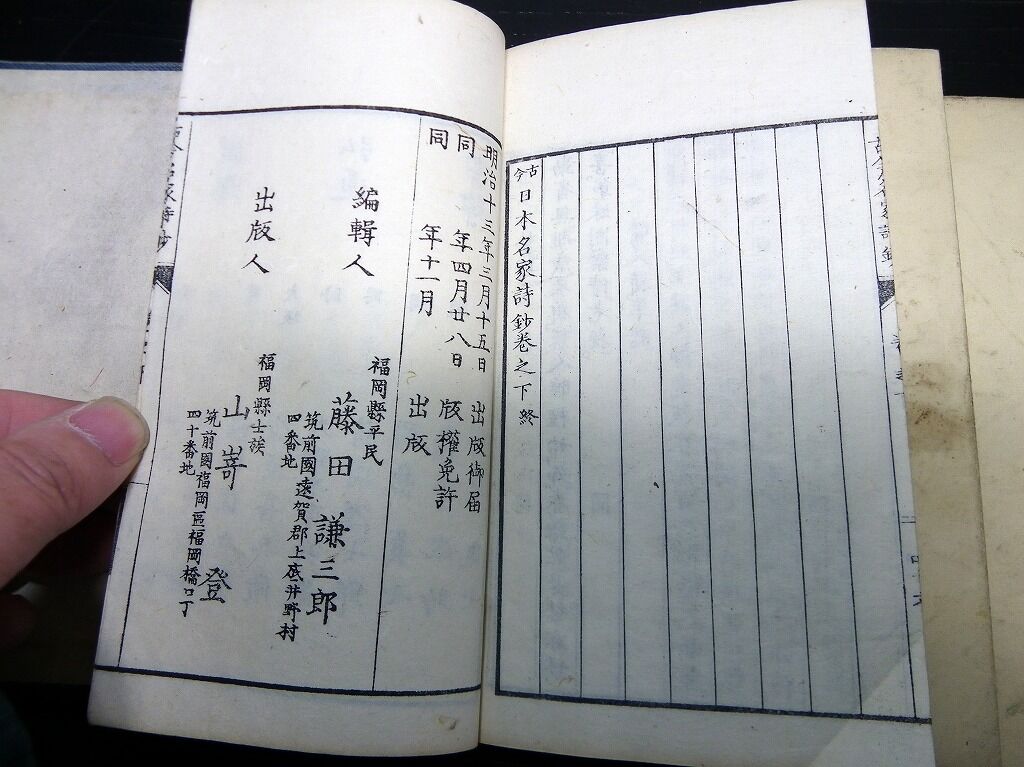 古今日本名家詩鈔卷之下終
明治十三年三月十五日 出版御届
同 年四月廿八日 版權免許
同 年十一月 出版
編輯人
福岡縣平民
藤田 謙三郎
筑前國遠賀郡上底井野村
四番地
出版人
福岡縣士族
山嵜 登
筑前國福岡區福岡橋口丁
四十番地